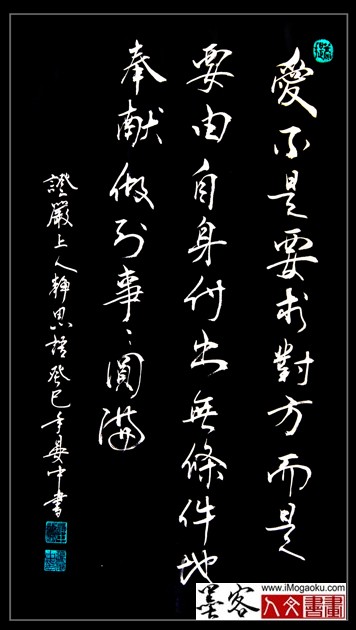 愛不是要求對方而是
要由自身付出無條件地
奉献做到事〻圓滿
證嚴上人靜思語癸巳年晏中書
墨客
www.iMogaoku.com
人文書畫